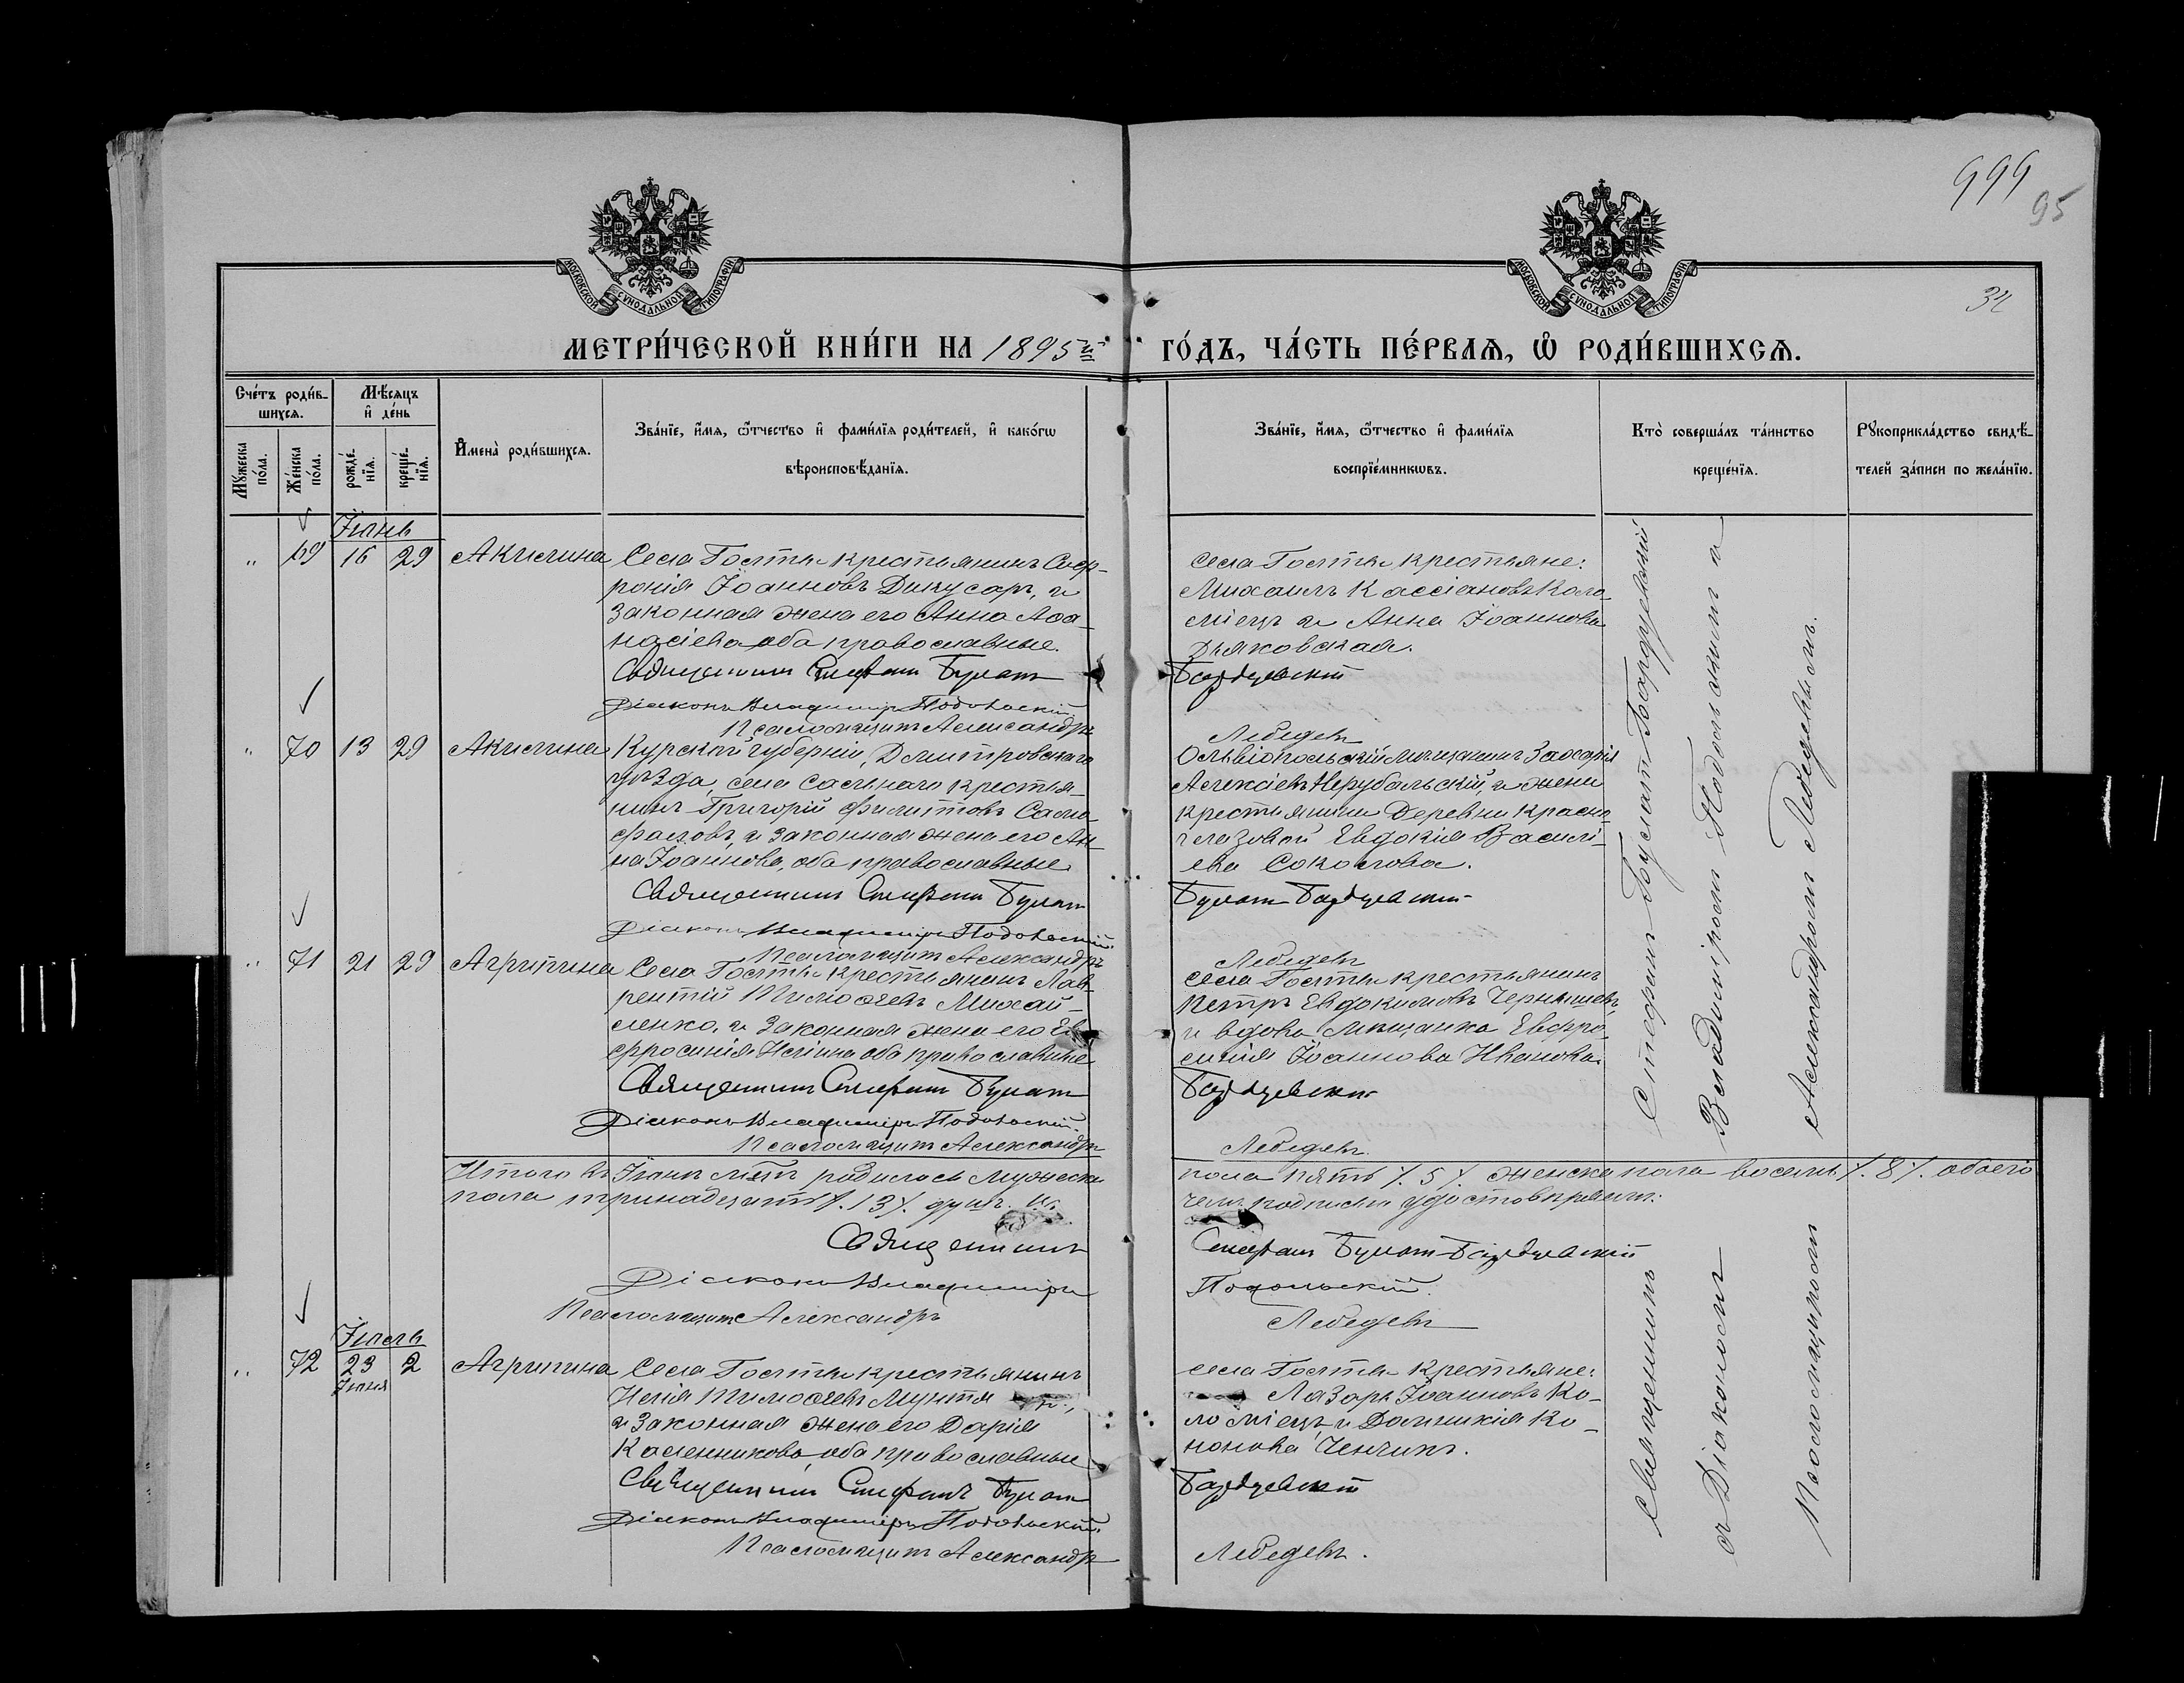 999
95
34
МОСКОВСКОЙ СѴНОДАЛЬНОЙ ТИПОГРАФІИ
МОСКОВСКОЙ СѴНОДАЛЬНОЙ ТИПОГРАФІИ
МЕТРИ́ЧЕСКОЙ КНИ́ГИ НА 1895й ГО́ДЪ, ЧА́СТЬ ПЕ́РВАѦ, Ѡ҆ РОДИ́ВШИХСѦ.
Сче́тъ роди́в-
шихсѧ.
Мꙋ́жеска по́ла.
Же́нска по́ла.
Мѣ́сѧцъ
и҆ де́нь
рожде́-
нїѧ.
креще́-
нїѧ.
И҆мена̀ роди́вшихсѧ.
Зва́нїе, и҆́мѧ, ѻ҆́тчество и҆ фами́лїѧ роди́телей, и҆ како́гѡ
вѣроисповѣ́данїѧ.
Зва́нїе, и҆́мѧ, ѻ҆́тчество и҆ фами́лїѧ
воспрїе́мникѡвъ.
Кто̀ соверша́лъ та́инство
креще́нїѧ.
Рꙋкоприкла́дство свидѣ́-
телей за́писи по жела́нїю.
Іюнь
" 69 16 29 Акилина
Села Гостьи крестьянинъ Соф-
роній Іоанновъ Дикусаръ, и
законная жена его Анна Аѳа-
насіева оба православные.
Священникъ Стефанъ Булат
Діаконъ Владиміръ Подольскій
Псаломщикъ Александръ
села Гостьи крестьяне:
Михаилъ Кассіановъ Коло-
міецъ и Анна Іоаннова
Дьяковская.
Бардуевскій
Лебедевъ
" 70 13 29 Акилина
Курской губерніи, Дмитровскаго
уѣзда, села Сальнаго крестья-
нинъ Григорій Филипповъ Само-
фаловъ, и законная жена его Ан-
на Іоаннова, оба православные
Священникъ Стефанъ Булат
Діаконъ Владиміръ Подольскій.
Псаломщикъ Александръ
Ольвіопольскій мѣщанинъ Захарія
Алексіевъ Нерубальскій, и жена
крестьянина деревни Красно-
глазовой Евдокія Василі-
ева Соколова.
Булат-Бардуевскій
Лебедевъ
" 71 21 29 Агрипина
Села Гостьи крестьянинъ Лав-
рентій Тимоѳеевъ Михай-
ленко, и законная жена его Ев-
фросинія Иліина оба православные
Священникъ Стефанъ Булат
Діаконъ Владиміръ Подольскій.
Псаломщикъ Александръ
села Гостьи крестьянинъ
Петръ Евдокимовъ Чернышевъ,
и вдова мѣщанка Евфро-
синія Іоаннова Иванова.
Бардуевскій
Лебедевъ.
Итого въ Іюнѣ м-цѣ родилось мужеска пола пять /. 5 /. женска пола восемь /. 8 /. обоего
пола тринадцать /. 13 /. душъ. въ чемъ подписью удостовѣряемъ:
Священникъ Стефанъ Булат-Бардуевскій
Діаконъ Владиміръ Подольскій.
Псаломщикъ Александръ Лебедевъ
Іюль
" 72 23 Іюня 2 Агрипина
Села Гостьи крестьянинъ
Илія Тимоѳеевъ Мунтя
и законная жена его Дарія
Калинникова, оба православные
Священникъ Стефанъ Булат
Діаконъ Владиміръ Подольскій.
Псаломщикъ Александръ
села Гостьи крестьяне:
Лазарь Іоанновъ Ко-
ломіецъ и Домникія Ко-
нонова Ченчикъ.
Бардуевскій
Лебедевъ.
Священникъ Стефанъ Булат-Бардуевскій
съ Діакономъ Владиміромъ Подольскимъ и
Псаломщикомъ Александромъ Лебедевымъ.